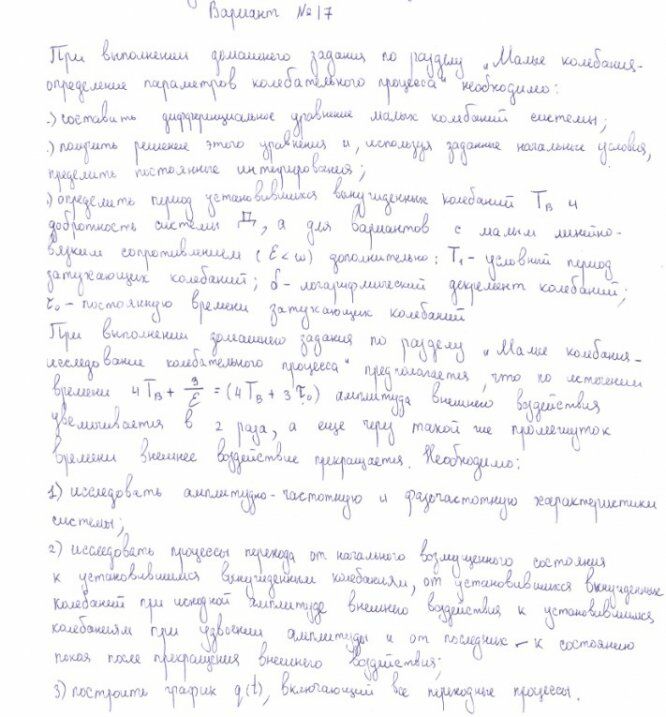 Вариант №17
При выполнении домашнего задания по разделу „Малые колебания-
определение параметров колебательного процесса" необходимо:
.) составить дифференциальное уравнение малых колебаний системы;
.) получить решение этого уравнения и, используя заданные начальные условия,
пределить постоянные интегрирования;
.) определить период установившихся вынужденных колебаний Tв и
добротность системы Д, а для вариантов с малым линейно-
вязким сопротивлением (ε<ω) дополнительно: T₁ - условный период
затухающих колебаний; δ - логарифмический декремент колебаний;
τ₀ - постоянную времени затухающих колебаний
При выполнении домашнего задания по разделу „Малые колебания-
исследование колебательного процесса" предполагается, что по истечении
времени 4Tв + 3/ε = (4Tв + 3τ₀) амплитуда внешнего воздействия
увеличивается в 2 раза, а еще через такой же промежуток
времени внешнее воздействие прекращается. Необходимо:
1) исследовать амплитудно-частотную и фазочастотную характеристики
системы;
2) исследовать процессы перехода от начального возмущенного состояния
к установившимся вынужденным колебаниям, от установившихся вынужденных
колебаний при исходной амплитуде внешнего воздействия к установившимся
колебаниям при удвоении амплитуды и от последних - к состоянию
покоя после прекращения внешнего воздействия;
3) построить график q(t), включающий все переходные процессы.